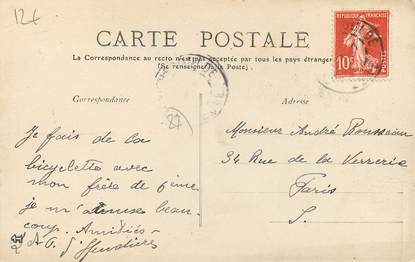 12€
CARTE POSTALE
La Correspondance au recto n'est pas acceptée par tous les pays étrangers
(Se renseigner à la Poste)
REPUBLIQUE FRANÇAISE
10c
POSTES
Correspondance
Adresse
87
Je fais de la
bicyclette avec
mon frère de 6ème
je m'amuse beau-
coup. Amitiés
Monsieur André Pousseau
34 Rue de la Verrerie
Paris